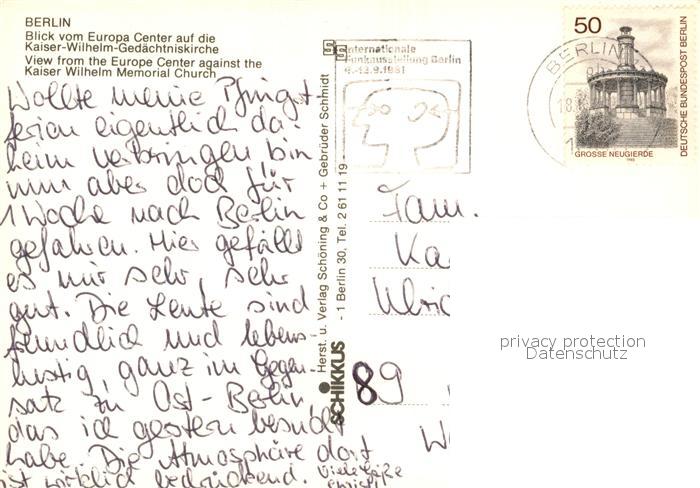 BERLIN
Blick vom Europa Center auf die
Kaiser-Wilhelm-Gedächtniskirche
View from the Europe Center against the
Kaiser Wilhelm Memorial Church
Wollte meine Pfingst-
ferien eigentlich da-
heim verbringen, bin
nun aber doch für
1 Woche nach Berlin
gefahren. Hier gefällt
es mir sehr, sehr
gut. Die Leute sind
freundlich und lebens-
lustig, ganz im Gegen-
satz zu Ost-Berlin
das ich gestern besucht
habe. Die Atmosphäre dort
ist wirklich bedrückend. Viele Grüße
SCHIKKUS
Herst. u. Verlag Schöning & Co + Gebrüder Schmidt
- 1 Berlin 30, Tel. 2 61 11 19 -
Internationale
Funkausstellung Berlin
4.-13.9.1981
BERLIN
18.
50
DEUTSCHE BUNDESPOST BERLIN
GROSSE NEUGIERDE
Fam.
Ka
Ulric
89
W
privacy protection
Datenschutz